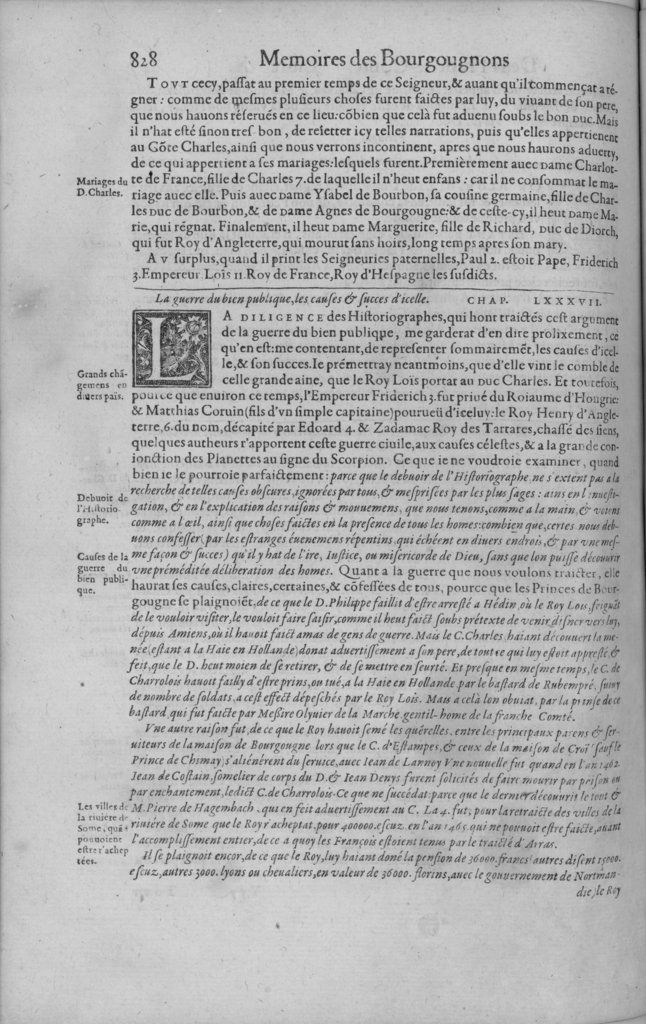 828 Memoires des Bourgougnons
TOVT cecy, passat au premier temps de ce Seigneur, & auant qu'il commençat a ré-
gner : comme de mesmes plusieurs choses furent faictes par luy, du viuant de son pere,
que nous hauons réserués en ce lieu: cõbien que celà fut aduenu soubs le bon DVC. Mais
il n'hat esté sinon tres bon, de reietter icy telles narrations, puis qu'elles appertienent
au Cõte Charles, ainsi que nous verrons incontinent, apres que nous haurons aduerty,
de ce qui appertient a ses mariages: lesquels furent. Premièrement auec DAME Charlot-
Mariages du
D. Charles.
te de France, fille de Charles 7. de laquelle il n'heut enfans : car il ne consommat le ma-
riage auec elle. Puis auec DAME Ysabel de Bourbon, sa cousine germaine, fille de Char-
les DVC de Bourbon, & de DAME Agnes de Bourgougne: & de ceste-cy, il heut DAME Ma-
rie, qui régnat. Finalement, il heut DAME Marguerite, fille de Richard, DVC de Diorch,
qui fut Roy d'Angleterre, qui mourut sans hoirs, long temps apres son mary.
AV surplus, quand il print les Seigneuries paternelles, Paul 2. estoit Pape, Friderich
3. Empereur Loïs 11. Roy de France, Roy d'Hespagne les susdicts.
La guerre du bien publique, les causes & succes d'icelle. CHAP. LXXXVII.
LA DILIGENCE des Historiographes, qui hont traictés cest argument
de la guerre du bien publique, me garderat d'en dire prolixement, ce
qu'en est: me contentant, de representer sommairemēt, les causes d'icel-
le, & son succes. Ie prémettray neantmoins, que d'elle vint le comble de
Grands chã-
gemens en
diuers païs.
celle grande aine, que le Roy Loïs portat au DVC Charles. Et toutefois,
pource que enuiron ce temps, l'Empereur Friderich 3. fut priué du Roiaume d'Hongrie
& Matthias Coruin (fils d'vn simple capitaine) pourueü d'iceluy: le Roy Henry d'Angle-
terre, 6. du nom, décapité par Edoard 4. & Zadamac Roy des Tartares, chassé des siens,
quelques autheurs r'apportent ceste guerre ciuile, aux causes célestes, & a la grande con-
ionction des Planettes au signe du Scorpion. Ce que ie ne voudroie examiner, quand
bien ie le pourroie parfaictement: parce que le debuoir de l'Historiographe, ne s'extent pas a la
Debuoir de
l'Historio-
graphe.
recherche de telles causes obscures, ignorées par tous, & mesprisées par les plus sages : ains en l'inuesti-
gation, & en l'explication des raisons & mouuemens, que nous tenons, comme a la main, & voions
comme a l'œil, ainsi que choses faictes en la presence de tous les homes: combien que, certes nous deb-
uons confesser (par les estranges éuenemens répentins, qui échéent en diuers endrois, & par vne mes-
me façon & succes) qu'il y hat de l'ire, Iustice, ou misericorde de Dieu, sans que lon puisse découurir
Causes de la
guerre du
bien publi-
que.
vne préméditée déliberation des homes. Quant a la guerre que nous voulons traicter, elle
haurat ses causes, claires, certaines, & cõfessées de tous, pource que les Princes de Bour-
gougne se plaignoiēt, de ce que le D. Philippe faillit d'estre arresté a Hédin, où le Roy Loïs, feignāt
de le vouloir visiter, le vouloit faire saisir, comme il heut faict soubs prétexte de venir disner vers luy,
dépuis Amiens, où il hauoit faict amas de gens de guerre. Mais le C. Charles, haiant découuert la me-
née (estant a la Haie en Hollande) donat aduertissement a son pere, de tout ce qui luy estoit appresté, &
feit, que le D. heut moien de se retirer, & de se mettre en seurté. Et presque en mesme temps, le C. de
Charrolois hauoit failly d'estre prins, ou tué, a la Haie en Hollande par le bastard de Rubempré, suiuy
de nombre de soldats, a cest effect dépeschés par le Roy Loïs. Mais a celà lon obuiat, par la prinse de ce
bastard, qui fut faicte par Messire Olyuier de la Marche, gentil-home de la franche Comté.
Vne autre raison fut, de ce que le Roy hauoit semé les quérelles, entre les principaux parens & ser-
uiteurs de la maison de Bourgougne lors que le C. d'Estampes, & ceux de la maison de Croï (sauf le
Prince de Chimay) s'aliénérent du seruice, auec Iean de Lannoy Vne nouuelle fut quand en l'an 1462.
Iean de Costain, somelier de corps du D. & Iean Denys furent solicités de faire mourir par poison ou
par enchantement, ledict C. de Charrolois. Ce que ne succédat: parce que le dernier découurit le tout à
Les villes de
la riuiére de
Some, quãd
pouuoient
estre r'achep
tées.
M. Pierre de Hagembach, qui en feit aduertissement au C. La 4. fut, pour la retraicte des villes de la
riuiére de Some que le Roy r'acheptat, pour 400000. escuz, en l'an 1463. qui ne pouuoit estre faicte, auant
l'accomplissement entier, de ce a quoy les François estoient tenus par le traicté d'Arras.
Il se plaignoit encor, de ce que le Roy, luy haiant doné la pension de 36000. francs (autres disent 15000.
escuz, autres 3000. lyons ou cheualiers, en valeur de 36000. florins, auec le gouuernement de Norman-
die) le Roy